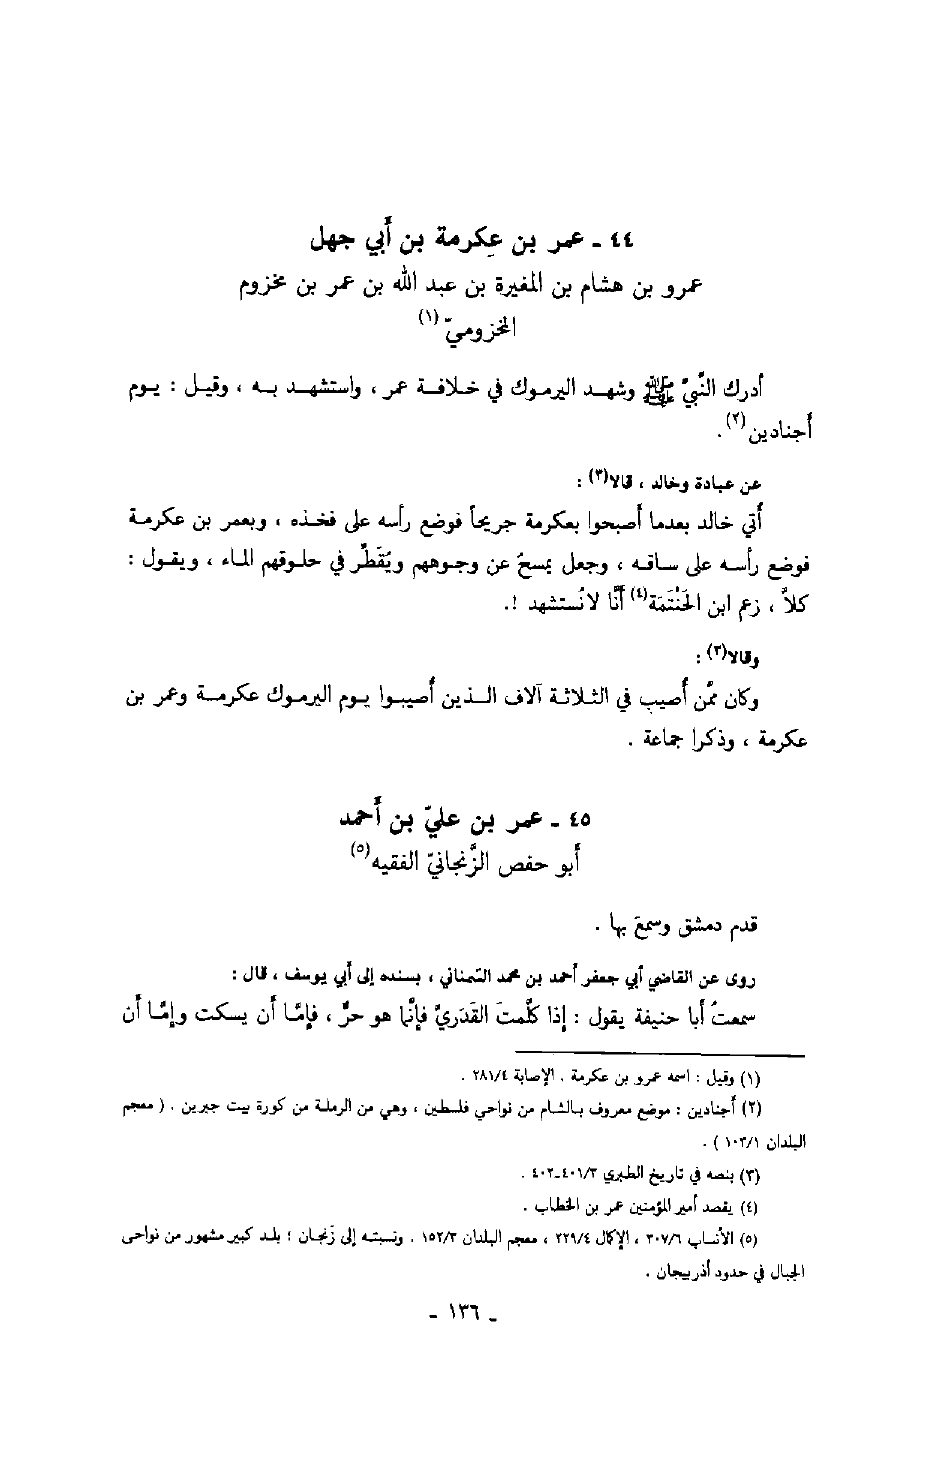 ٤٤ ـ عمر بن عِكرمة بن أَبي جهل
عمرو بن هشام بن المغيرة بن عبد الله بن عمر بن مخزوم
المخزوميّ(١)
أدرك النَّبيَّ ﷺ وشهد اليرموك في خلافة عمر ، واستشهد به ، وقيل : يوم
أجنادين(٢) .
عن عبادة وخالد ، قالا(٣) :
أُتي خالد بعدما أصبحوا بعكرمة جريحاً فوضع رأسه على فخذه ، وبعمر بن عكرمة
فوضع رأسه على ساقه ، وجعل يمسحُ عن وجوههم ويُقَطِّر في حلوقهم الماء ، ويقول :
كلاَّ ، زعم ابن الحَنْتَمَة(٤) أنَّا لا نُستشهد !.
وقالا(٣) :
وكان ممَّن أُصيب في الثلاثة آلاف الذين أُصيبوا يوم اليرموك عكرمة وعمر بن
عكرمة ، وذكرا جماعة .
٤٥ ـ عمر بن عليّ بن أَحمد
أبو حفص الزَّنجانيّ الفقيه(٥)
قدم دمشق وسمعَ بها .
روى عن القاضي أبي جعفر أحمد بن محمد السَّمناني ، بسنده إلى أبي يوسف ، قال :
سمعتُ أبا حنيفة يقول : إذا كلَّمتَ القَدَريَّ فإنَّما هو حرَّ ، فإمَّا أن يسكت وإمَّا أن
(١) وقيل : اسمه عمرو بن عكرمة . الإصابة ٢٨١/٤ .
(٢) أجنادين : موضع معروف بالشام من نواحي فلسطين ، وهي من الرملة من كورة بيت جبرين . ( معجم
البلدان ١٠٣/١ ) .
(٣) بنصه في تاريخ الطبري ٤٠١/٣ـ٤٠٢ .
(٤) يقصد أمير المؤمنين عمر بن الخطاب .
(٥) الأنساب ٣٠٧/٦ ، الإكمال ٢٢٩/٤ ، معجم البلدان ١٥٢/٣ . ونسبته إلى زَنجان ؛ بلد كبير مشهور من نواحي
الجبال في حدود أذربيجان .
ـ ١٣٦ ـ